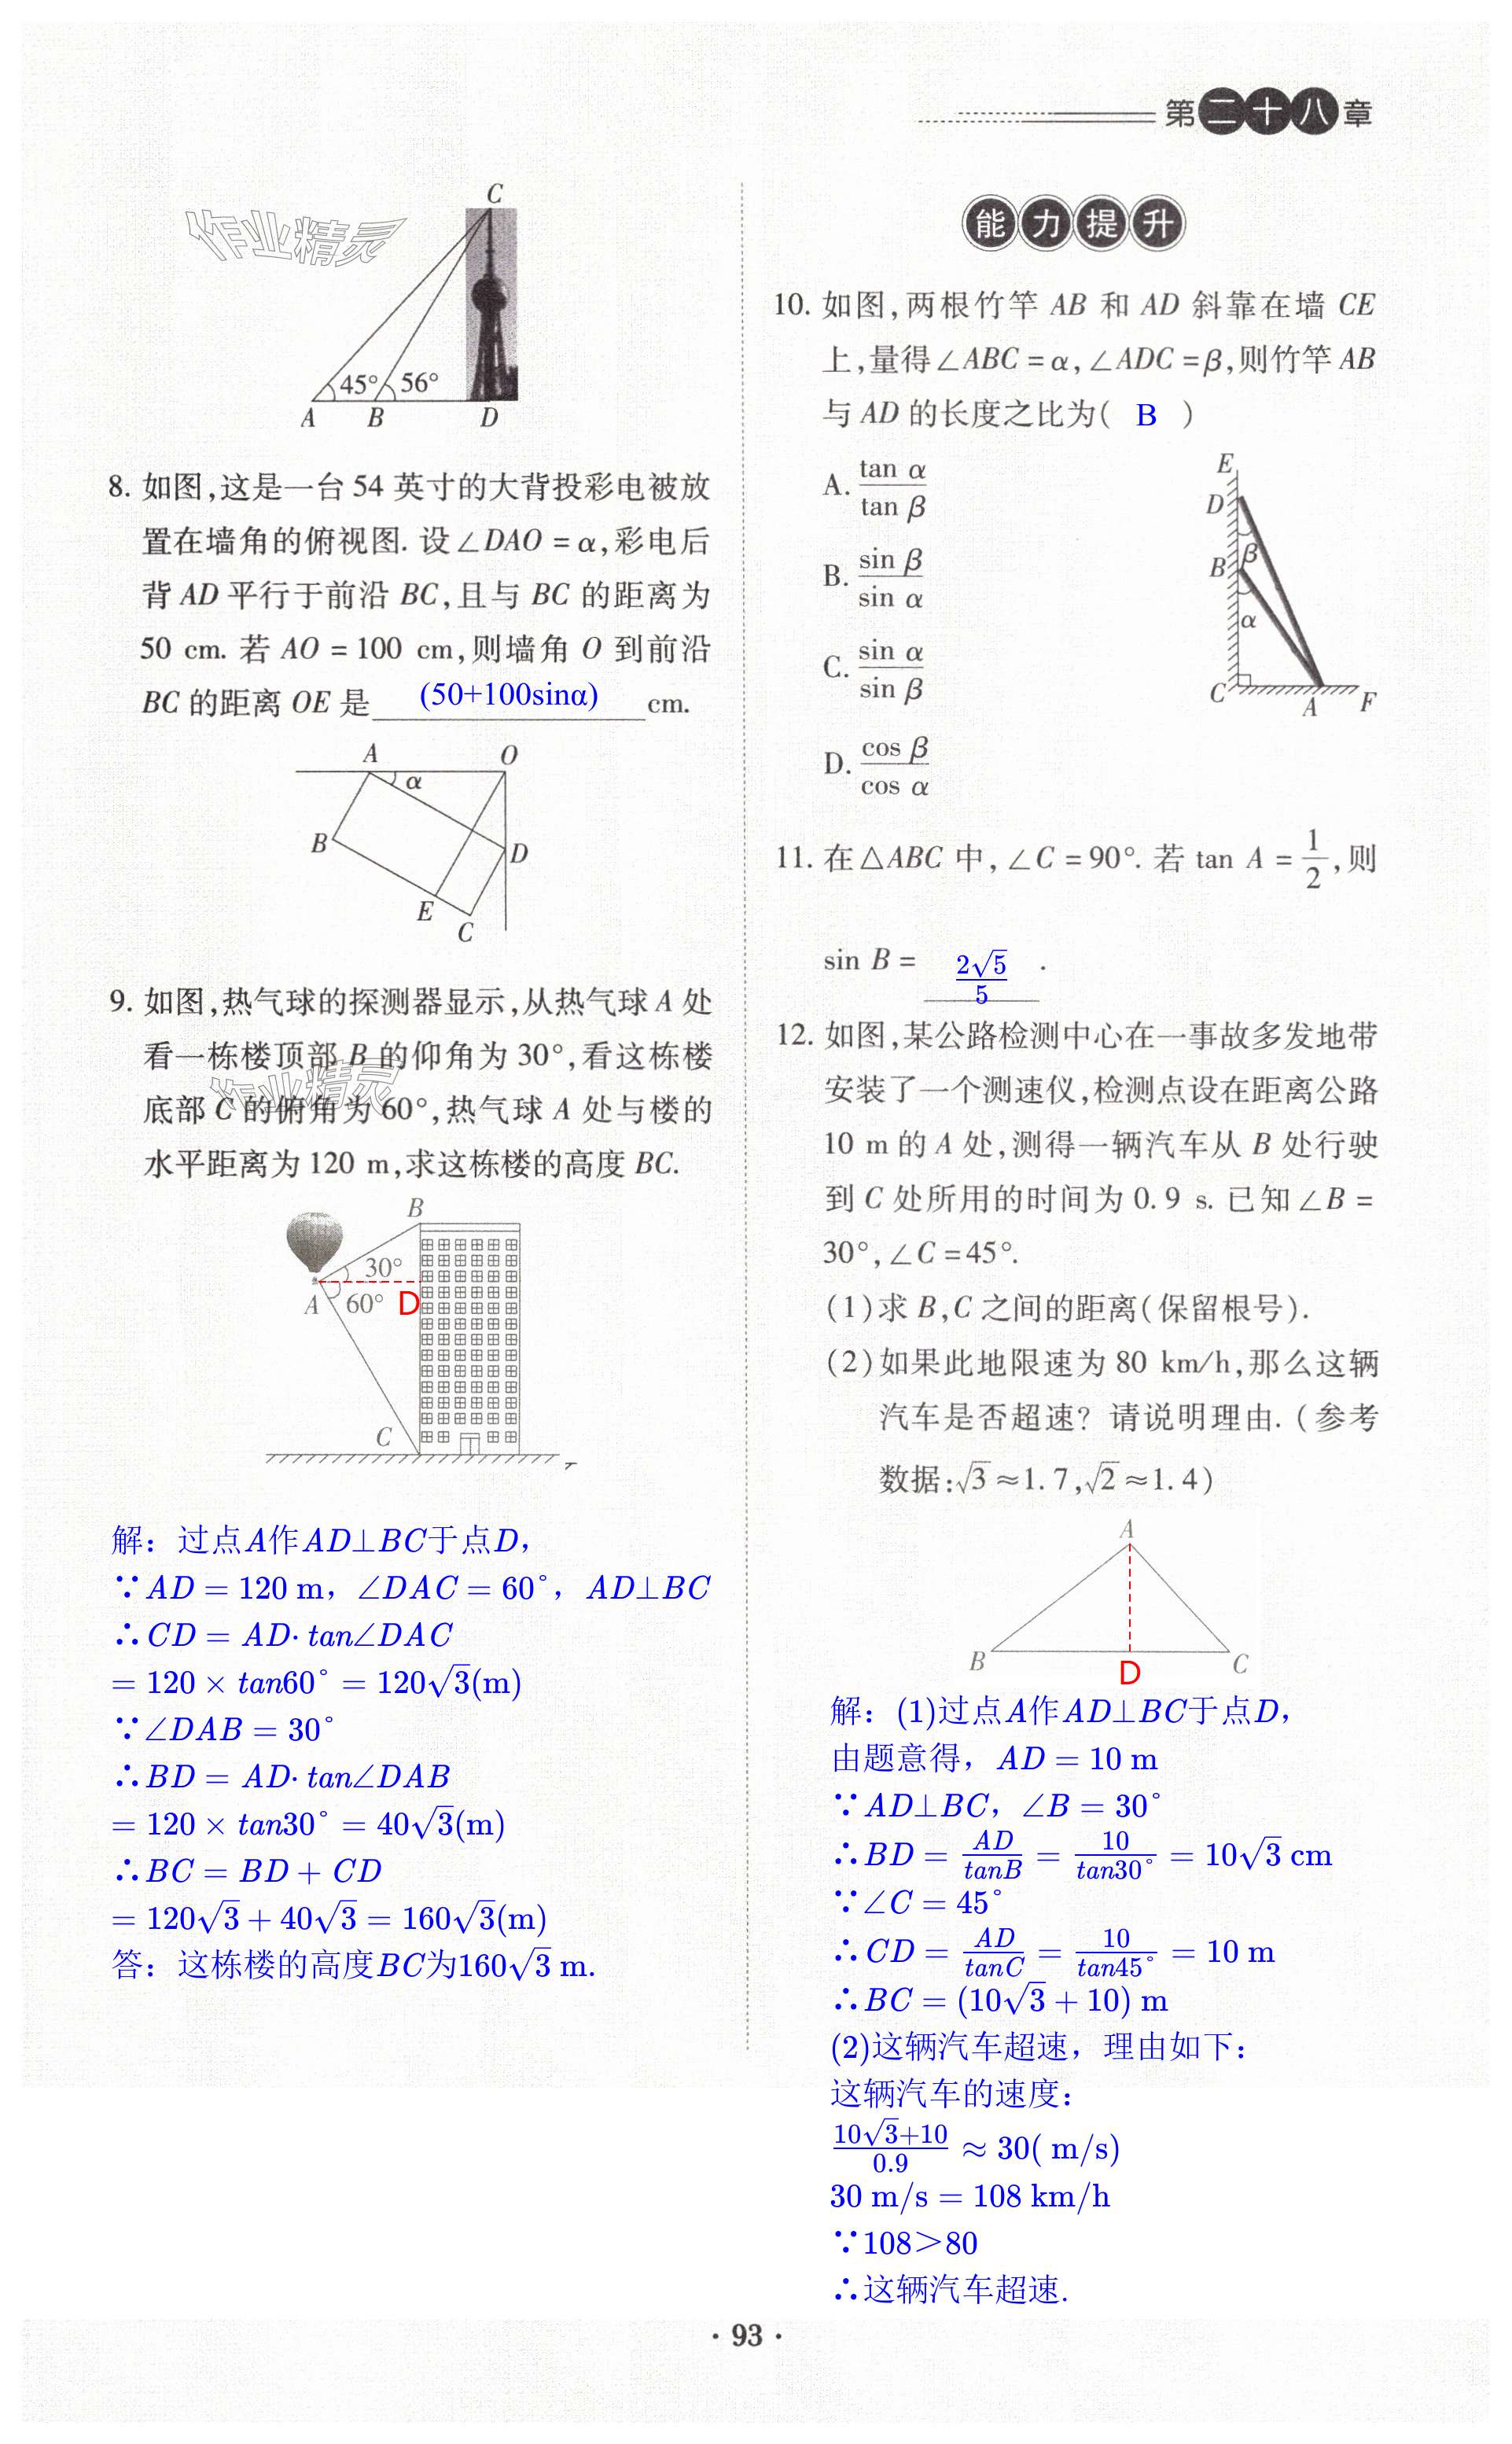 第二十八章
作业精灵
C
45°
56°
A B D
8. 如图,这是一台 54 英寸的大背投彩电被放
置在墙角的俯视图. 设∠DAO = α,彩电后
背 AD 平行于前沿 BC,且与 BC 的距离为
50 cm. 若 AO = 100 cm,则墙角 O 到前沿
BC 的距离 OE 是 (50+100sinα) cm.
A O
α
B
D
E
C
9. 如图,热气球的探测器显示,从热气球 A 处
看一栋楼顶部 B 的仰角为 30°,看这栋楼
作业精灵
底部 C 的俯角为 60°,热气球 A 处与楼的
水平距离为 120 m,求这栋楼的高度 BC.
B
30°
A 60° D
C
解：过点A作AD⊥BC于点D，
∵AD = 120 m，∠DAC = 60°，AD⊥BC
∴CD = AD·tan∠DAC
= 120 × tan60° = 120√3(m)
∵∠DAB = 30°
∴BD = AD·tan∠DAB
= 120 × tan30° = 40√3(m)
∴BC = BD + CD
= 120√3 + 40√3 = 160√3(m)
答：这栋楼的高度BC为160√3 m.
能力提升
10. 如图,两根竹竿 AB 和 AD 斜靠在墙 CE
上,量得∠ABC = α,∠ADC = β,则竹竿 AB
与 AD 的长度之比为( B )
A. tan α / tan β
B. sin β / sin α
C. sin α / sin β
D. cos β / cos α
E
D
β
B
α
C A F
11. 在△ABC 中,∠C = 90°. 若 tan A = 1/2,则
sin B = 2√5/5 .
12. 如图,某公路检测中心在一事故多发地带
安装了一个测速仪,检测点设在距离公路
10 m 的 A 处,测得一辆汽车从 B 处行驶
到 C 处所用的时间为 0.9 s. 已知∠B =
30°,∠C = 45°.
(1)求 B,C 之间的距离(保留根号).
(2)如果此地限速为 80 km/h,那么这辆
汽车是否超速? 请说明理由. (参考
数据:√3≈1.7,√2≈1.4)
A
B D C
解：(1)过点A作AD⊥BC于点D，
由题意得，AD = 10 m
∵AD⊥BC，∠B = 30°
∴BD = AD/tanB = 10/tan30° = 10√3 cm
∵∠C = 45°
∴CD = AD/tanC = 10/tan45° = 10 m
∴BC = (10√3 + 10) m
(2)这辆汽车超速，理由如下：
这辆汽车的速度：
(10√3+10)/0.9 ≈ 30( m/s)
30 m/s = 108 km/h
∵108>80
∴这辆汽车超速.
· 93 ·